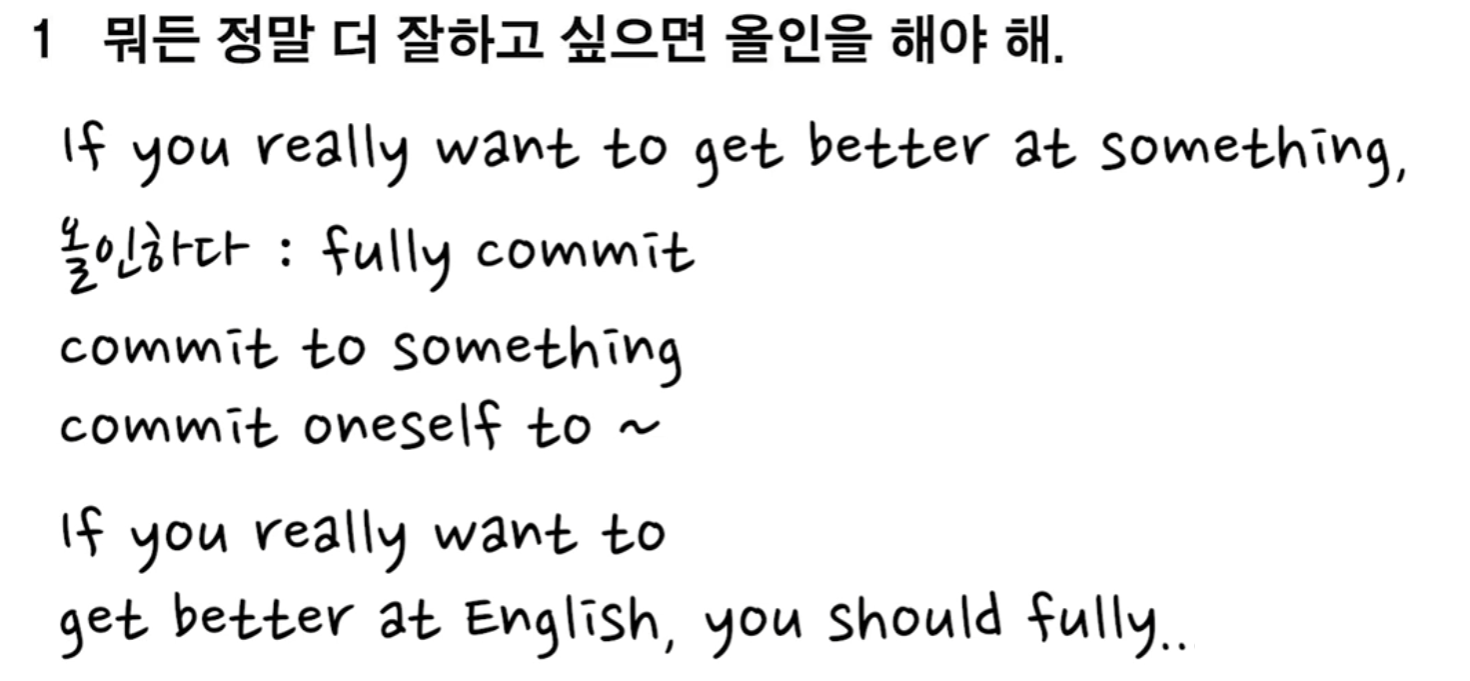 1 뭐든 정말 더 잘하고 싶으면 올인을 해야 해.
If you really want to get better at something,
올인하다 : fully commit
commit to something
commit oneself to ~
If you really want to
get better at English, you should fully..